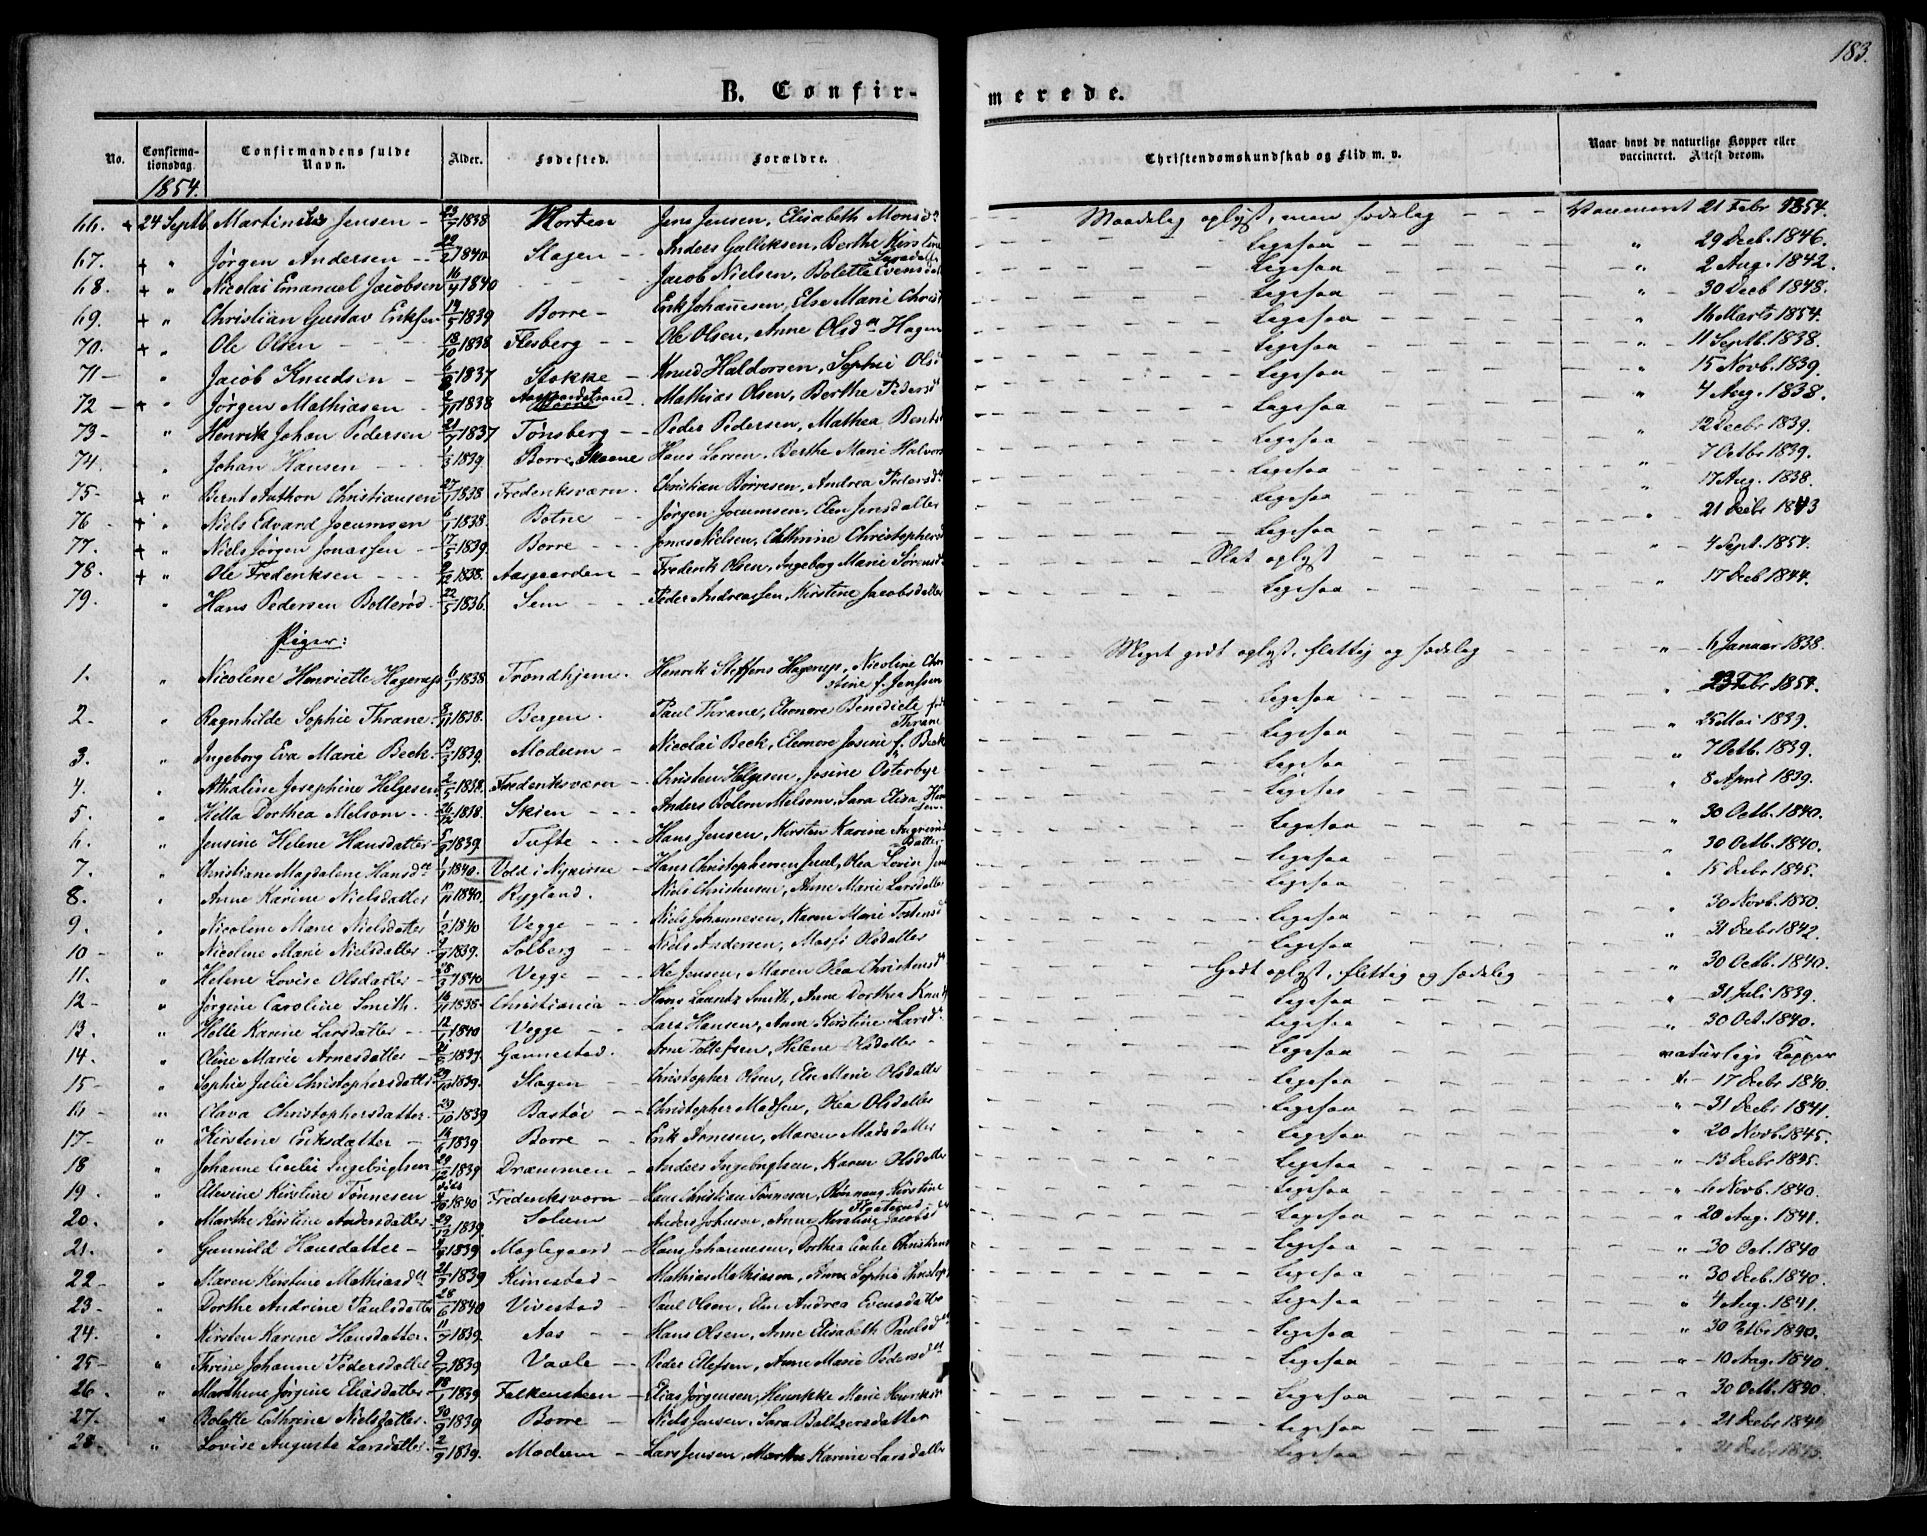 183.
B. Confirmerede.
No. Confirmationsdag. Confirmandens fulde Navn. Alder. Fødested. Forældre. Christendomskundskab og Flid m. v. Naar havt de naturlige Kopper eller vaccineret. Attest derom.
1854.
66. + 24 Septb. Martinius Jensen - 23/7 1838 Horten Jens Jensen, Elisabeth Monsd Maadelig oplyst, men sædelig Vaccineret 21 Febr 1854.
67. + " Jørgen Andersen - 22/2 1840 Slagen Anders Gulliksen, Berthe Kirstine Larsdatter Ligesaa " 29 Decb. 1846.
68. + " Nicolai Emanuel Jacobsen 16/4 1840 - - - Jacob Nielsen, Bolette Evensd Ligesaa " 2 Aug. 1842.
69. + " Christian Gustav Eriksen 14/5 1839 Borre - Erik Johannesen, Else Marie Christ Ligesaa " 30 Decb 1848.
70. + " Ole Olsen - - - 18/10 1838 Flesberg - - Ole Olsen, Anne Olsdtr Hagen Ligesaa " 16 Marts 1854.
71 - " Jacob Knudsen - 6/8 1837 Stokke - Knud Haldorsen, Sophie Olsd Ligesaa " 11 Septb. 1838.
72 - + " Jørgen Mathiasen - 2/11 1838 Aasgaardstrand Mathias Olsen, Berthe Pedersd Ligesaa " 15 Novb. 1839.
73 - " Henrik Johan Pedersen 21/7 1837 Tønsberg - - Peder Pedersen, Mathea Bents Ligesaa " 4 Aug. 1838.
74. " Johan Hansen - - - 1/3 1839 Borre, Skoene Hans Larsen, Berthe Marie Halvors Ligesaa " 12 Decbr 1839.
75 - + " Bernt Anthon Christiansen 27/1 1838 Frederiksværn. Christian Børresen, Andrea Pedersd Ligesaa " 7 Octbr 1839.
76 - + " Niels Edvard Jocumsen 6/1 1838. Botne - - Jørgen Jocumsen, Elen Jensdatter Ligesaa " 17 Aug. 1838.
77. + " Niels Jørgen Jonassen - 17/5 1839. Borre - - - Jonas Nielsen, Cathrine Christophersd Ligesaa " 21 Decbr 1843
78. + " Ole Frederiksen - - - 9/12 1838. Aasgaarden - Frederik Olsen, Ingeborg Marie Sørensd Slet oplyst " 4 Sept. 1854.
79. " Hans Pedersen Bollerød - 22/5 1836. Sem - - - Peder Andreassen, Kirstine Jacobsdatter Ligesaa " 17 Decb 1844.
Piger:
1. " Nicolene Henriette Hagerup 6/7 1838 Trondhjem. Henrik Steffens Hagerup, Nicoline Christine f. Jenssen Meget godt oplyst, flittig og sædelig " 6 Januar 1838.
2 - " Ragnhilde Sophie Thrane. 8/11 1838. Bergen. Paul Thrane, Eleonore Benedicte fød Thrane Ligesaa " 23 Febr 1854.
3. " Ingeborg Eva Marie Beck. 13/3 1839. Modum - Nicolai Beck, Eleonore Josine f. Beck Ligesaa " 25 Mai 1839.
4. " Athaline Josephine Helgesen 2/5 1838. Frederiksværn - Christen Helgesen, Josine Osterbye Ligesaa " 7 Octb. 1839.
5. " Hella Dorthea Melsom - - 26/12 1838. Skien - Anders Bolern Melsom, Sara Elisa Ligesaa " 8 April 1839.
6. " Jensine Helene Hansdatter 5/9 1839. Tufte - - Hans Jensen, Kirsten Karine Datter Ligesaa " 30 Octb. 1840.
7. " Christiane Magdalene Hansdtr 1/1 1840. Vold i Nykirke - Hans Christophersen Juul, Olea Lovise Ligesaa " 30 Octb. 1840.
8. " Anne Karine Nielsdatter 1840. Rygland. Niels Christensen, Anne Marie Larsdatter Ligesaa " 15 Decbr 1845.
9. " Nicoline Marie Nielsdatter 1/2 1840 Vegge - - Niels Johannesen, Karen Marie Tostensd Ligesaa " 30 Novb. 1850.
10 - " Nicoline Marie Nielsdatter 1839. Solberg - Niels Andersen, Massi Olsdatter Ligesaa " 31 Decbr 1842.
11. " Helene Lovise Olsdatter - 28/3 1840 Vegge - - Ole Jensen, Maren Olea Christensd Godt oplyst, flittig og sædelig " 30 Octb. 1840.
12 - " Jørgine Caroline Smith. 16/11 1838 - Christiania - Hans Lauritz Smith, Anne Dorthea Knuds Ligesaa " 31 Juli 1839.
13. " Helle Karine Larsdatter - 12/1 1840 Vegge - - Lars Hansen, Anne Kirstine Larsd Ligesaa " 30 Oct. 1840.
14. " Oline Marie Arnesdatter - 1839. Gannestad. Arne Tollefsen, Helene Olsdatter - Ligesaa naturlige Kopper
15 - " Sophie Julie Christophersdatter 29/10 1839. Slagen - Christopher Olsen, Else Marie Olsdatter Ligesaa " 17 Decbr 1840.
16 - " Olava Christophersdatter. 29/10 1839 Bastøe - - Christopher Madsen, Olea Olsdatter Ligesaa " 31 Decbr 1841.
17 - " Kirstine Eriksdatter - 1839 Borre - - Erik Arnesen, Maren Madsdatter Ligesaa " 20 Novb. 1845.
18 " Johanne Cecilie Ingebrigtsen 29/12 1839 Drammen - Anders Ingebrigtsen, Karen Olsdatter Ligesaa " 13 Decbr 1845.
19. " Elevine Kirstine Tønnesen 4/10 1840 Frederiksværn - Hans Christian Tønnesen, Rønnaug Kirstine Ligesaa " 6 Novb. 1840.
20. " Marthe Kirstine Andersdatter 29/12 1839. Solum Anders Johnsen, Anne Kirstine Jacobsd Ligesaa " 20 Aug. 1841.
21. " Gunnild Hansdatter - 1839 Moglegaard - Hans Johannesen, Dorthea Christians Ligesaa " 30 Oct. 1840
22 - " Maren Kirstine Mathiasdtr 21/7 1839 Kinestad - Mathias Mathiasen, Anne Sophie Christoph Ligesaa " 30 Decb. 1840.
23 - " Dorthe Andrine Paulsdatter 28/6 1840 Vivestad - Paul Olsen, Else Andrea Evensdatter Ligesaa " 4 Aug. 1841.
24. " Kirsten Karine Hansdatter. 11/7 1839. Aas - - Hans Olsen, Anne Elisabeth Paulsd Ligesaa " 30 Octbr 1840.
25 - " Thrine Johanne Pedersdatter 9/7 1839 Vaale - - Peder Ellefsen, Anne Marie Pedersdtr Ligesaa " 10 Aug. 1840.
26. " Marthine Jørgine Eliasdatter 18/1 1839 Falkensteen - Elias Jørgensen, Henrikke Marie Henriks Ligesaa " 30 Octb. 1840
27. " Bolette Cathrine Nielsdatter. 30/9 1839 Borre - Niels Jensen, Sara Baltzersdatter Ligesaa " 21 Decbr 1844
28 - " Lovise Auguste Larsdatter. 2/9 1839. Modum - Lars Jensen, Marthe Karine Larsdatter Ligesaa " 31 Decbr 1845.